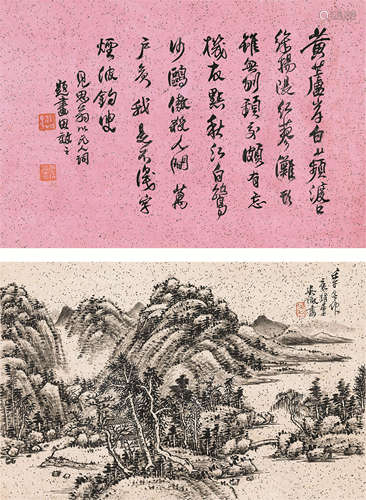 黃蘆岸白蘋渡口
綠楊隄紅蓼灘頭
雖無刎頸交頗有忘
機友點秋江白鷺
沙鷗傲殺人間萬
戶侯我是不識字
煙波釣叟
見思翁以元人詞
題畫因效之